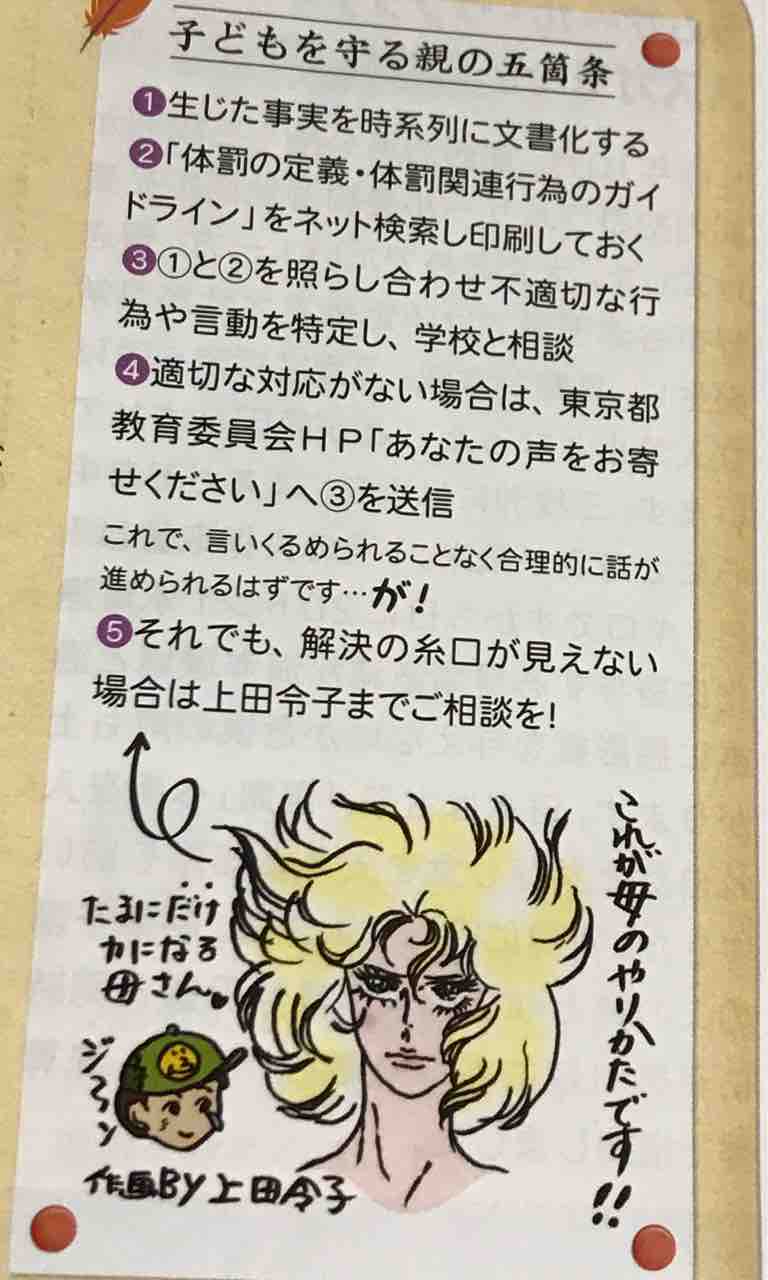 子どもを守る親の五箇条
❶生じた事実を時系列に文書化する
❷「体罰の定義・体罰関連行為のガイ
ドライン」をネット検索し印刷しておく
❸①と②を照らし合わせ不適切な行
為や言動を特定し、学校と相談
❹適切な対応がない場合は、東京都
教育委員会HP「あなたの声をお寄
せください」へ③を送信
これで、言いくるめられることなく合理的に話が
進められるはずです…が!
❺それでも、解決の糸口が見えない
場合は上田令子までご相談を!
これが母のやりかたです!!
たまにだけ
力になる
母さん♥
ジーン
作画BY上田令子